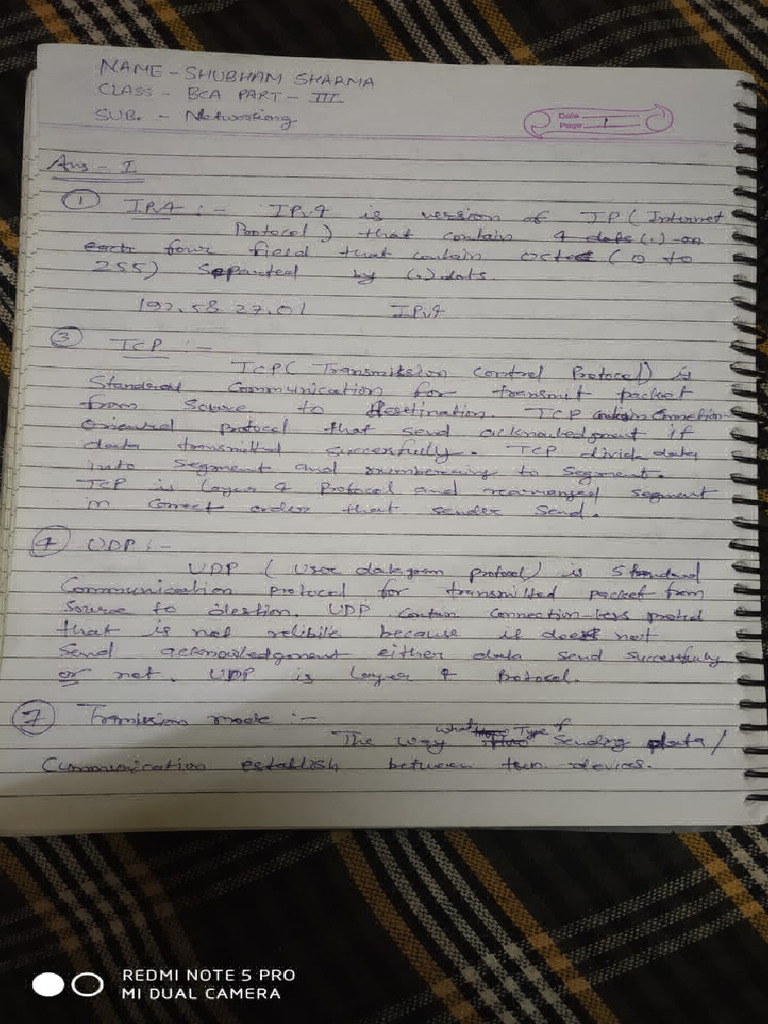 NAME - SHUBHAM SHARMA
CLASS - BCA PART - III
SUB. - Networking
Date
Page 1
Ans - I
① IPv4 :- IPv4 is version of IP ( Internet
Protocol ) that contain 4 dots (.) on
each four field that contain octet ( 0 to
255) Separted by (.) dots.
192.58.27.01 IPv4
③ TCP :-
TCP ( Transmission Control Protocol) is
Standerd Communication for transmit packet
from Source to Destination. TCP contain Connection-
Oriented protocol that send acknowledgment if
data transmitted successfully. TCP divide data
into segment and numbering to segment.
TCP is layer 4 Protocol and rearranged segment
in correct order that sender send.
④ UDP :-
UDP ( User datagram protocol) is Standard
Communication protocol for transmitted packet from
Source to UDP contain connection-less
that is not because it does not
Send acknowledgement either data send successfully
or not. UDP is layer 4 Protocol.
⑦ mode :-
The way what Type of Sending data /
Communication establish between two devices.
REDMI NOTE 5 PRO
MI DUAL CAMERA